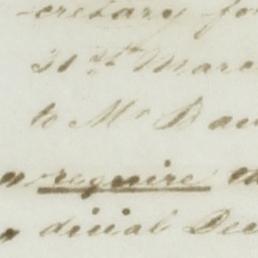 cretary fo
31st Marc
to Mr Bau
require th
dicial Dec